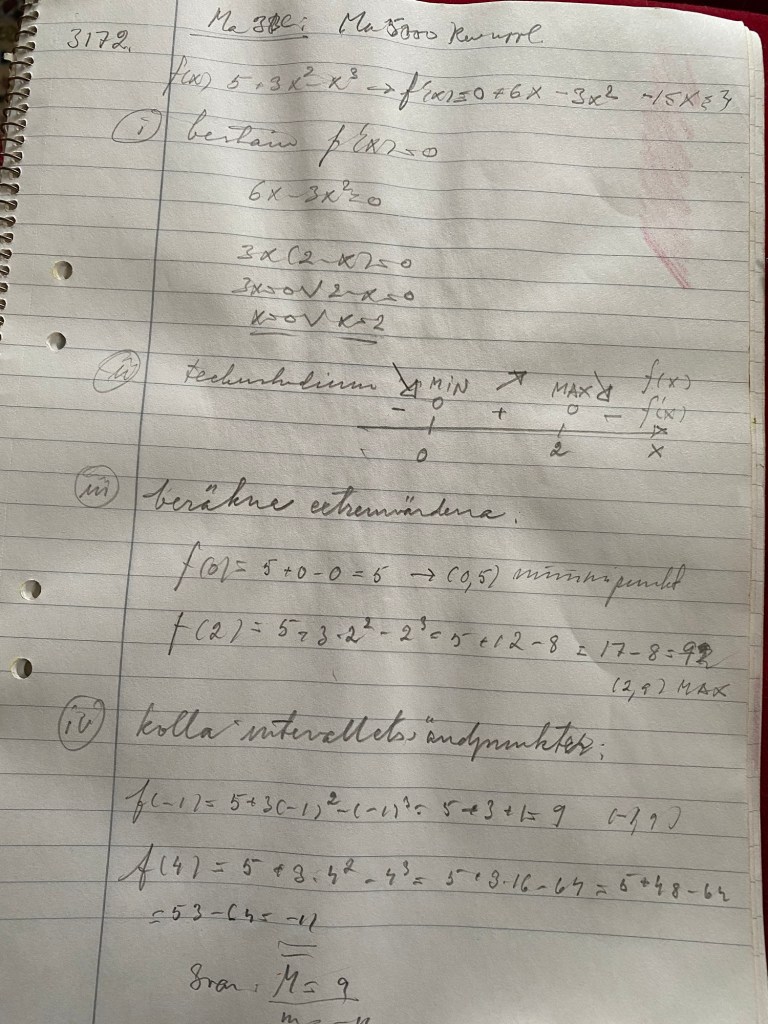 3172.
Ma 3c: Ma5000
f(x) 5+3x²-x³ → f'(x)=0+6x-3x² -1≤x≤4
i) bestäm f'(x)=0
6x-3x²=0
3x(2-x)=0
3x=0 V 2-x=0
x=0 V x=2
ii) teckenstudium ↘ MIN ↗ MAX ↘ f(x)
- 0 + 0 - f'(x)
0 2 x
iii) beräkna extremvärdena:
f(0)= 5+0-0=5 → (0,5) minimipunkt
f(2)= 5+3·2²-2³=5+12-8=17-8=9
(2,9) MAX
iv) kolla intervallets ändpunkter:
f(-1)=5+3(-1)²-(-1)³=5+3+1=9 (-1,9)
f(4)=5+3·4²-4³=5+3·16-64=5+48-64
=53-64=-11
Svar: M=9
m=-11